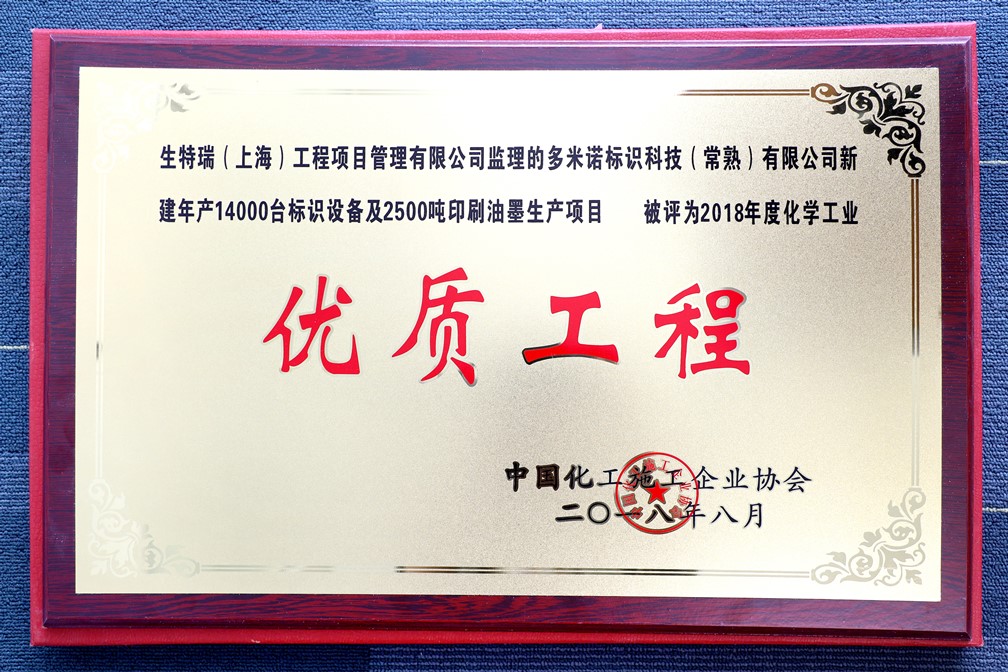 生特瑞（上海）工程项目管理有限公司监理的多米诺标识科技（常熟）有限公司新
建年产14000台标识设备及2500吨印刷油墨生产项目　被评为2018年度化学工业
优质工程
中国化工施工企业协会
二〇一八年八月